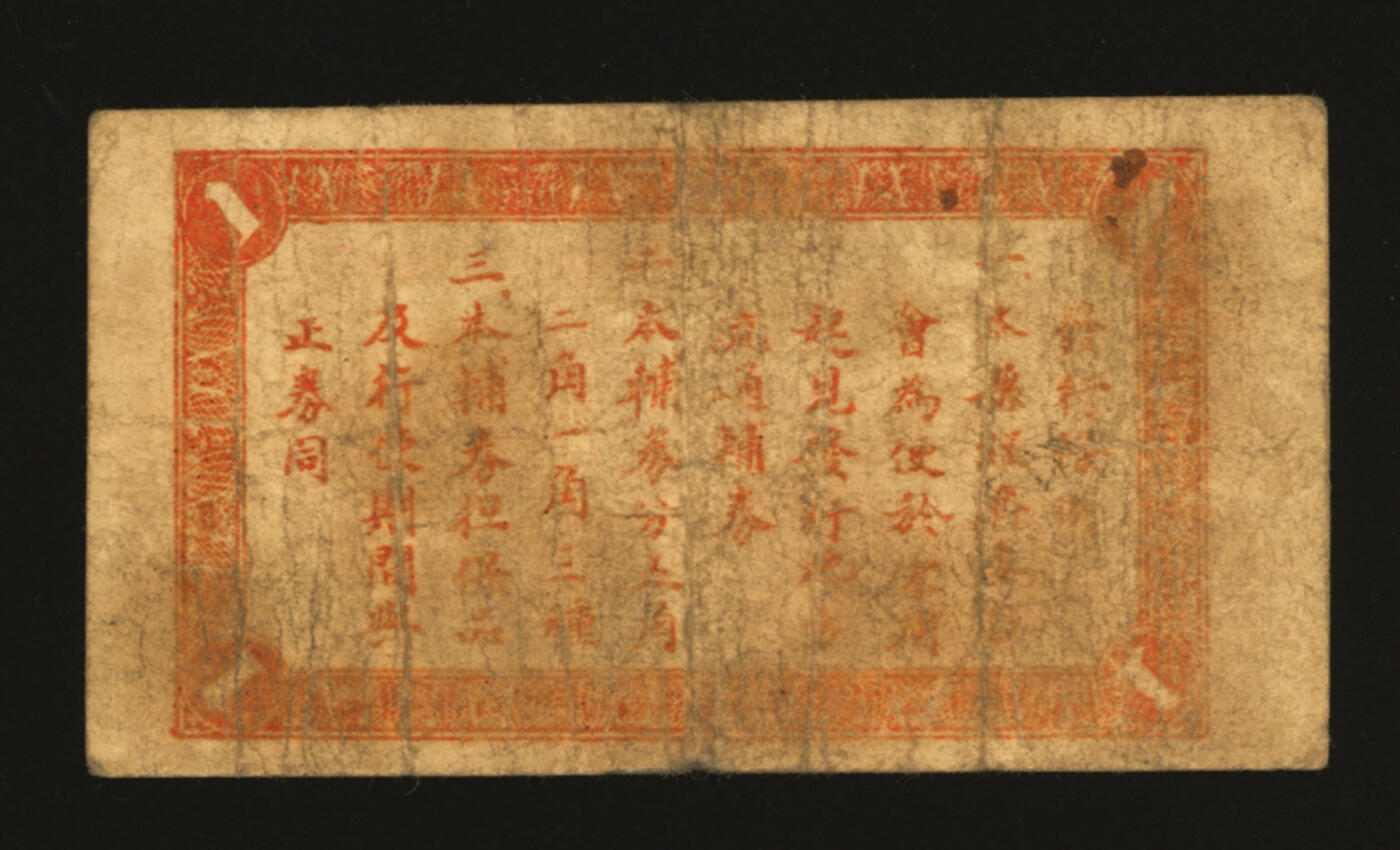 行
一、本縣經委員
會為便於
起見發行地方
流通補券
二本輔券分五角
二角一角三種
三、本補券担保品
及行使期間與
正券同
1
1
1